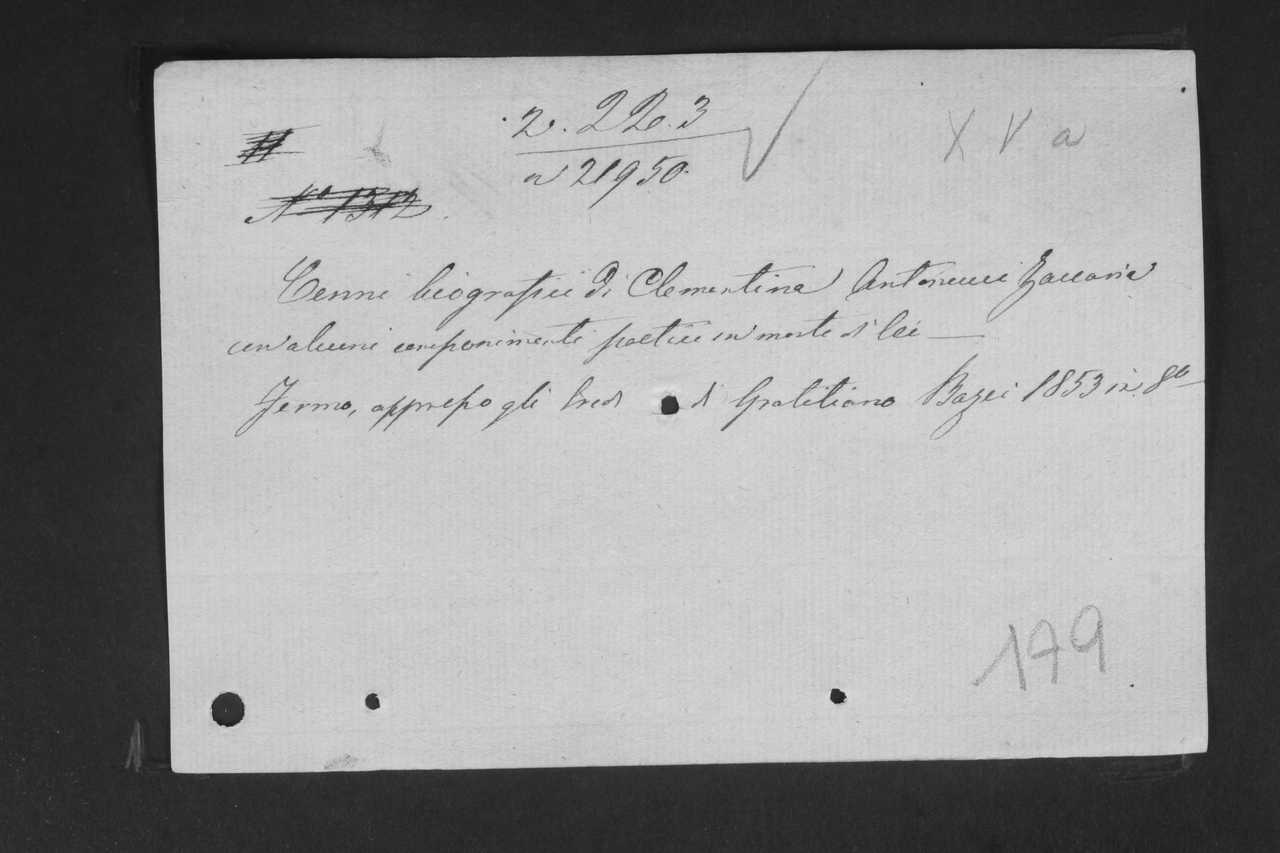 2. 22. 3
a 21950.
X V a
H
N.º 1312
Cenni biografici di Clementina Antonucci Zaccaria
con alcuni componimenti poetici in morte di lei —
Fermo, appresso gli Eredi di Bazzi 1853 in 8º
179